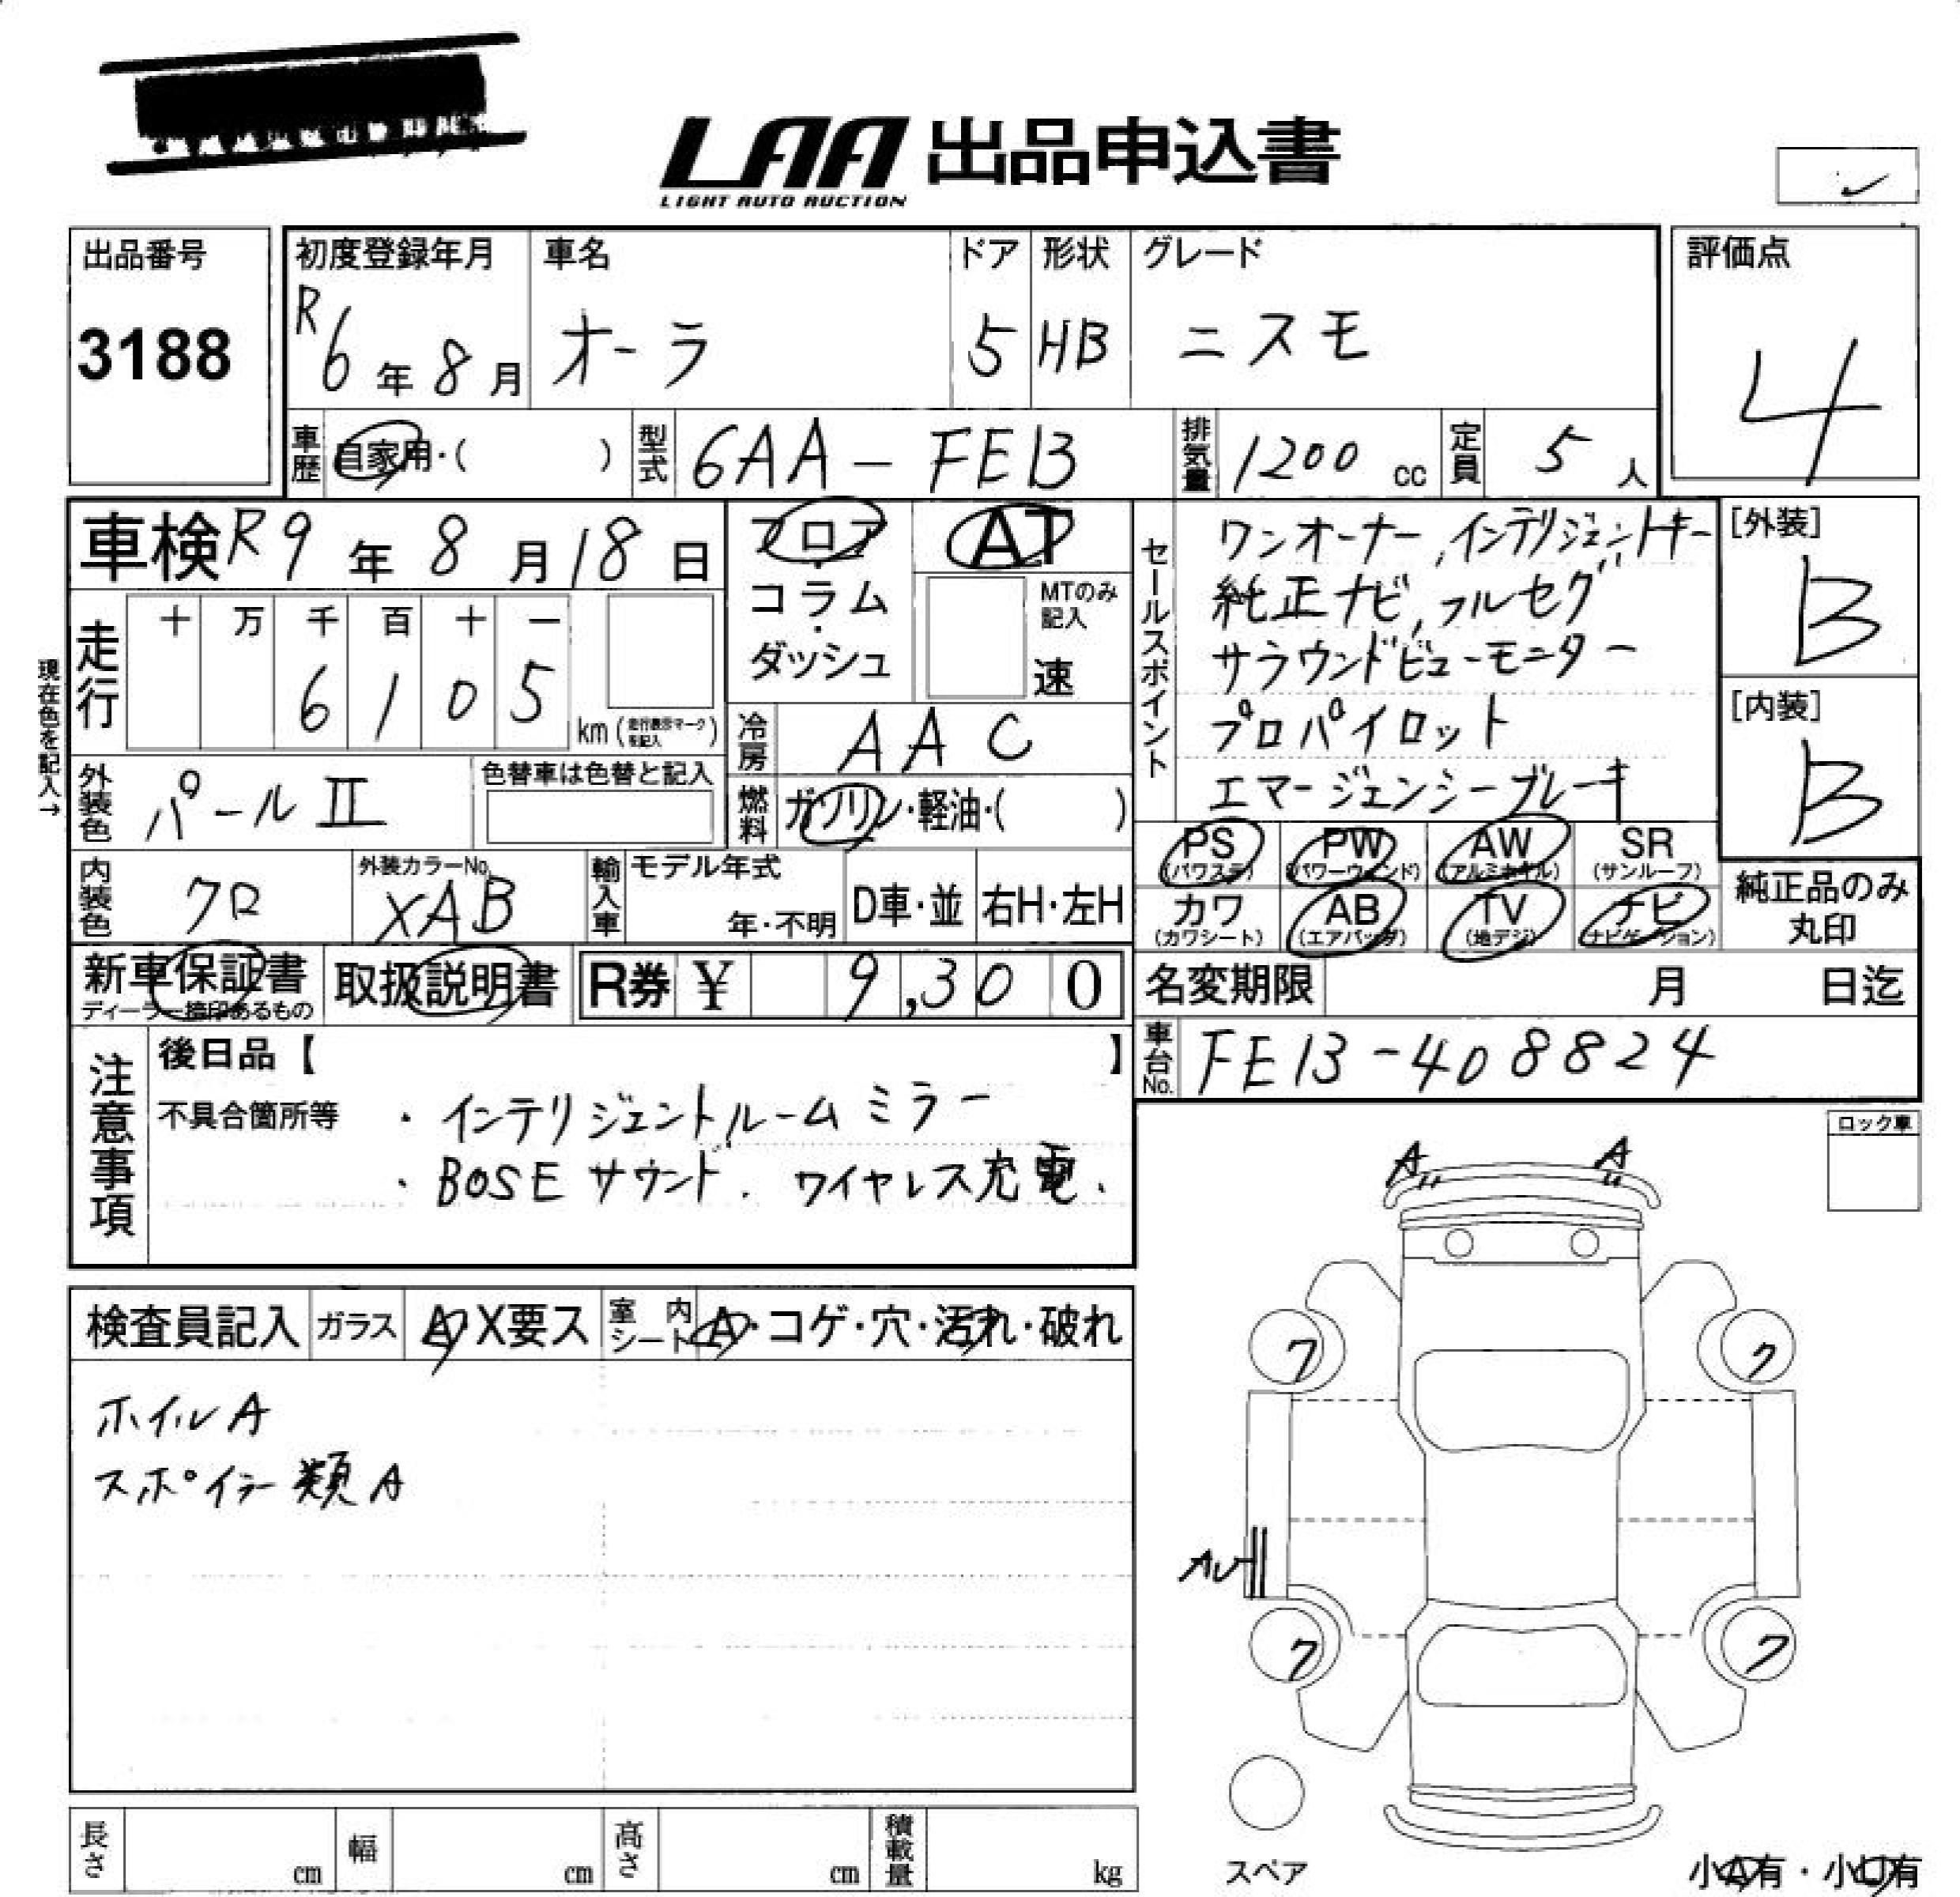 LAA 出品申込書
LIGHT AUTO AUCTION
出品番号
3188
初度登録年月
R6年8月
車名
オーラ
ドア
5
形状
HB
グレード
ニスモ
評価点
4
車歴 自家用・( )
型式 6AA-FE13
排気量 1200 cc
定員 5人
車検 R9年8月18日
フロア・コラム・ダッシュ
AT
MTのみ記入
速
セールスポイント
ワンオーナー,インテリジェントキー
純正ナビ,フルセグ
サラウンドビューモニター
プロパイロット
エマージェンシーブレーキ
[外装]
B
[内装]
B
現在色を記入→
走行
十 万 千 百 十 一
6 1 0 5
km(走行表示マークを記入)
冷房 AAC
外装色 パールII
色替車は色替と記入
燃料 ガソリン・軽油・( )
内装色 クロ
外装カラーNo.
XAB
輸入車 モデル年式
年・不明
D車・並
右H・左H
PS (パワステ)
PW (パワーウィンド)
AW (アルミホイル)
SR (サンルーフ)
カワ (カワシート)
AB (エアバッグ)
TV (地デジ)
ナビ (ナビゲーション)
純正品のみ
丸印
新車保証書
ディーラー捺印あるもの
取扱説明書
R券 ¥ 9,300
名変期限 月 日迄
車台No. FE13-408824
注意事項
後日品【 】
不具合箇所等
・インテリジェントルームミラー
・BOSEサウンド. ワイヤレス充電.
ロック車
検査員記入
ガラス A・X要ス
室内シート A・コゲ・穴・汚れ・破れ
ホイルA
スポイラー類A
A
A
ク
ク
AU
ク
ク
スペア
長さ cm
幅 cm
高さ cm
積載量 kg
小A有・小U有